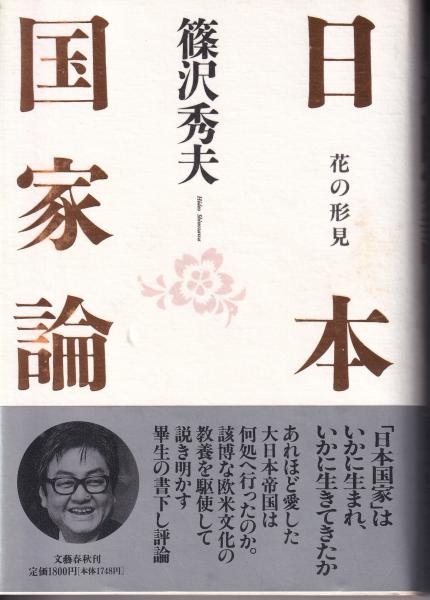 日本
国家論
花の形見
篠沢秀夫
Hideo Shinozawa
「日本国家」は
いかに生まれ、
いかに生きてきたか
あれほど愛した
大日本帝国は
何処へ行ったのか。
該博な欧米文化の
教養を駆使して
説き明かす
畢生の書下し評論
文藝春秋刊
定価1800円[本体1748円]